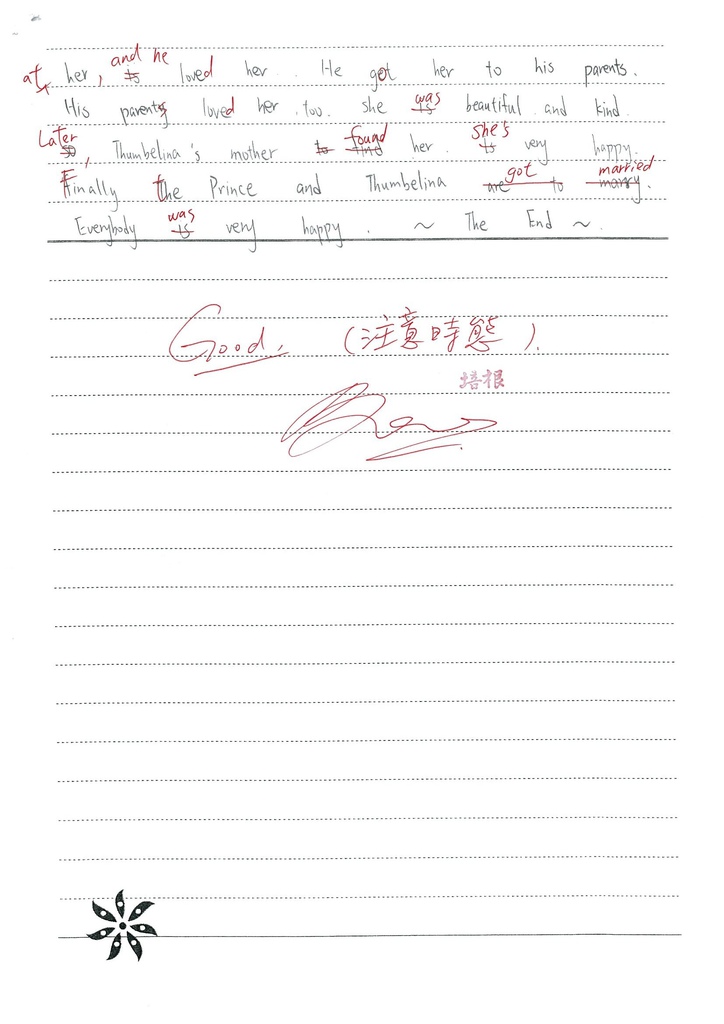 at her, and he is loved her. He get her to his parents.
His parents loved her too. she was is beautiful and kind.
Later so, Thumbelina's mother to found find her. she's is very happy.
Finally the Prince and Thumbelina got are to married marry.
Everybody was is very happy. ~ The End ~.
Good. (注意時態).
培根